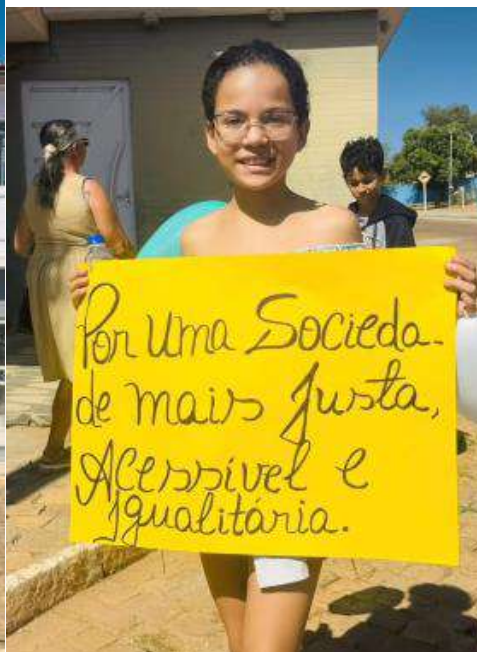 Por uma Socieda-
de mais Justa,
Acessível e
Igualitária.